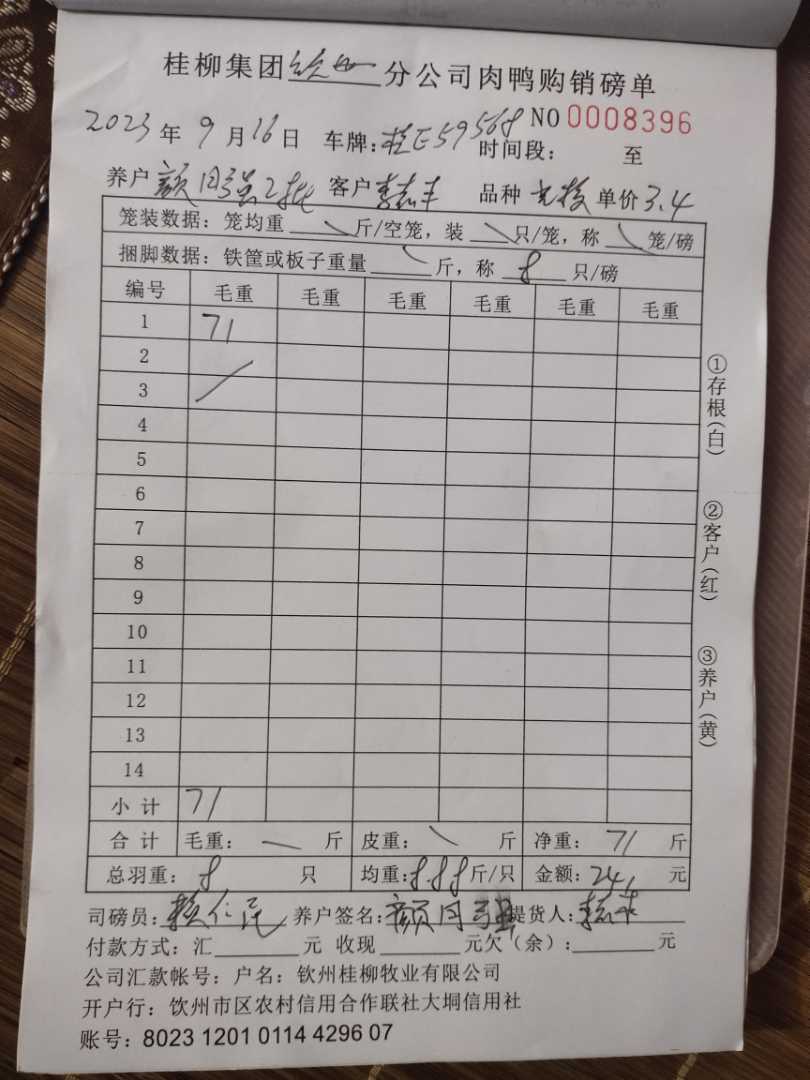 桂柳集团钦州分公司肉鸭购销磅单
2023年9月16日 车牌:桂E59568 NO 0008396
时间段: 至
养户 颜月强2批 客户 李志丰 品种 单价3.4
笼装数据:笼均重 \ 斤/空笼,装 \ 只/笼,称 \ 笼/磅
捆脚数据:铁筐或板子重量 \ 斤,称 8 只/磅
编号 毛重 毛重 毛重 毛重 毛重 毛重
1 71
2
3
4
5
6
7
8
9
10
11
12
13
14
小计 71
合计 毛重: \ 斤 皮重: \ 斤 净重: 71 斤
总羽重: 8 只 均重:8.88斤/只 金额:241 元
司磅员:赖仁民 养户签名:颜月强 提货人:李志丰
付款方式:汇 元 收现 元欠(余): 元
公司汇款帐号:户名:钦州桂柳牧业有限公司
开户行:钦州市区农村信用合作联社大垌信用社
账号:8023 1201 0114 4296 07
①存根(白)
②客户(红)
③养户(黄)